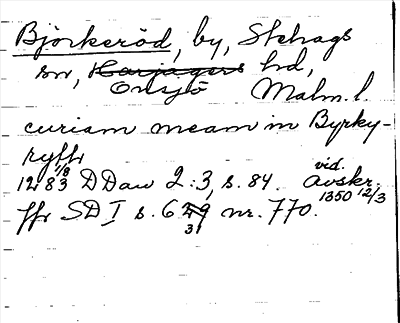 Björkeröd, by, Stehags
sn, Harjagers hd,
Onsjö Malm. l.
curiam meam in Byrky-
ryffr
1283 1/8 DDan 2:3, s. 84. vid. Avskr. 1350 12/3
ffr SD I s. 629 31 nr. 770.